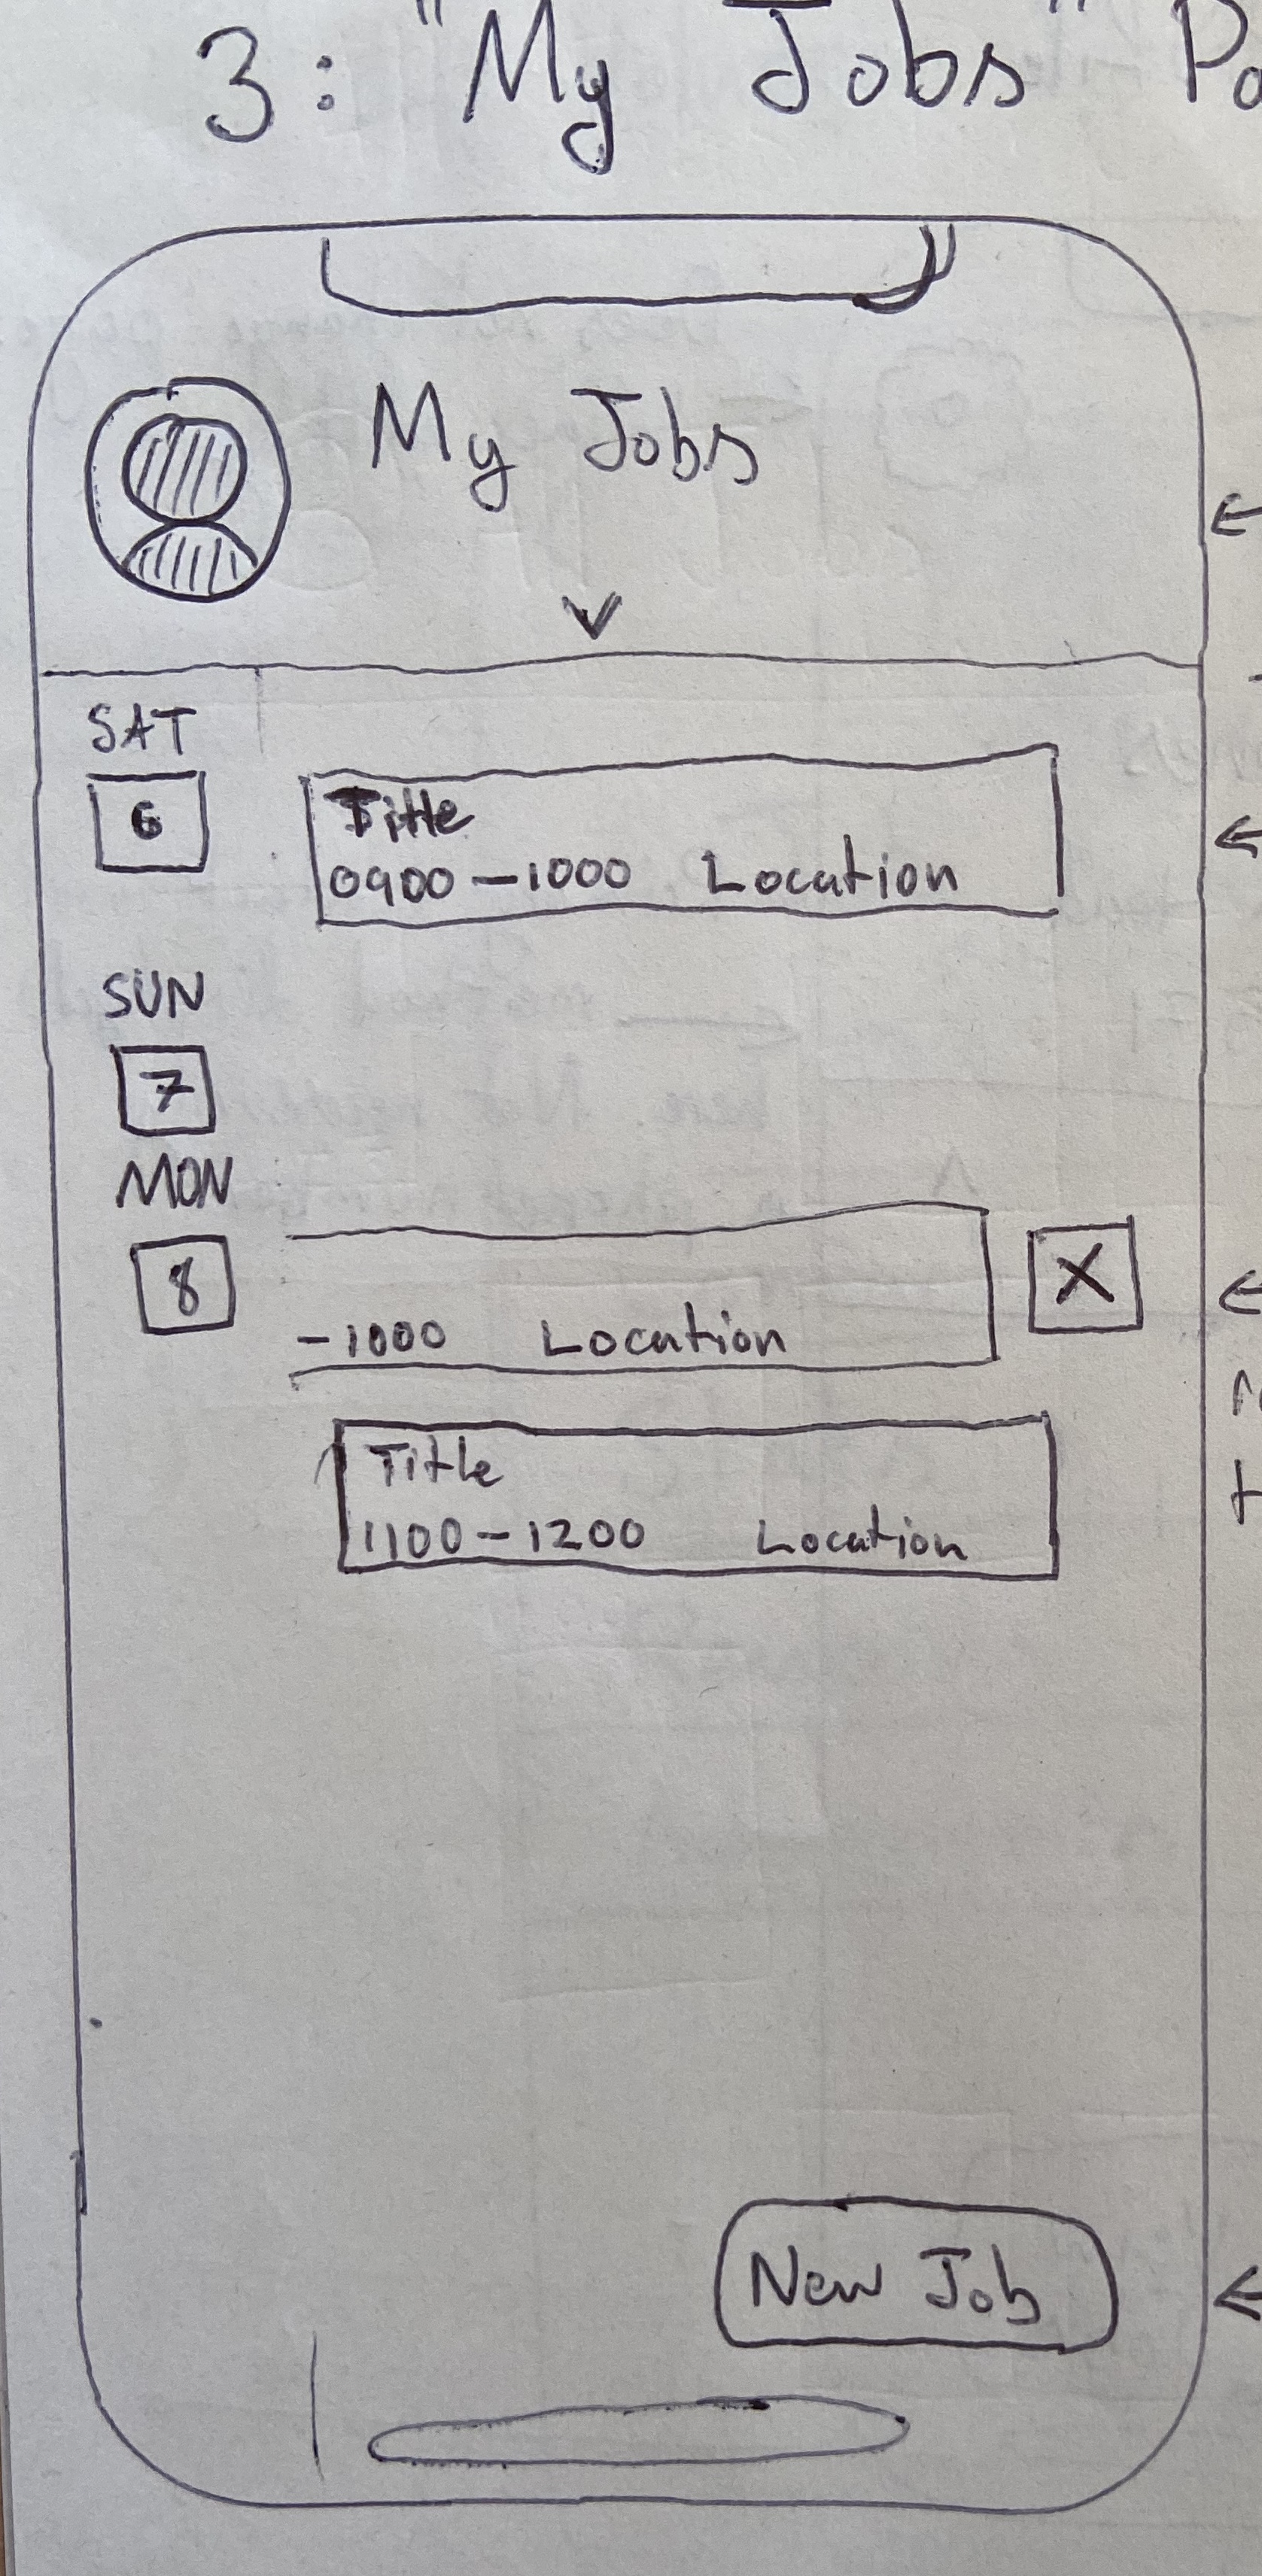 3: "My Jobs" Pa
My Jobs
SAT
6
Title
0900-1000 Location
SUN
7
MON
8
-1000 Location
X
Title
1100-1200 Location
New Job